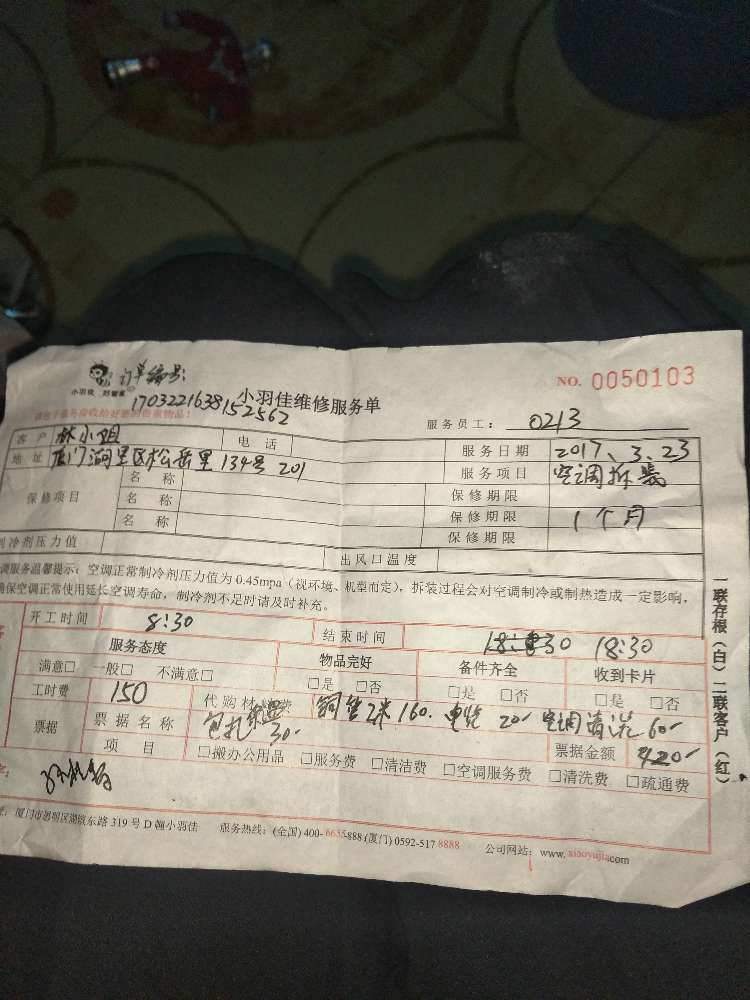 订单编号:
小羽佳 好管家
NO. 0050103
170322163815​2562
小羽佳维修服务单
服务员工: 0213
客户 林小姐 电话 服务日期 2017、3、23
地址 厦门湖里区松岳里134号201 服务项目 空调拆装
保修项目 名称 保修期限
名称 保修期限 1个月
名称 保修期限
制冷剂压力值 出风口温度
调服务温馨提示: 空调正常制冷剂压力值为0.45mpa(视环境、机型而定), 拆装过程会对空调制冷或制热造成一定影响,
确保空调正常使用延长空调寿命, 制冷剂不足时请及时补充。
开工时间 8:30 结束时间 18:30 18:30
服务态度 物品完好 备件齐全 收到卡片
满意□ 一般□ 不满意□ □是 □否 □是 □否 □是 □否
工时费 150 代购材料费 铜管2米160. 电缆20 空调清洗60
票据 票据名称 包扎带 30 票据金额 420
项目 □搬办公用品 □服务费 □清洁费 □空调服务费 □清洗费 □疏通费
厦门市思明区湖滨东路319号D幢小羽佳 服务热线: (全国)400-6655888 (厦门) 0592-5178888 公司网站: www.xiaoyujia.com
一联存根(白) 二联客户(红)